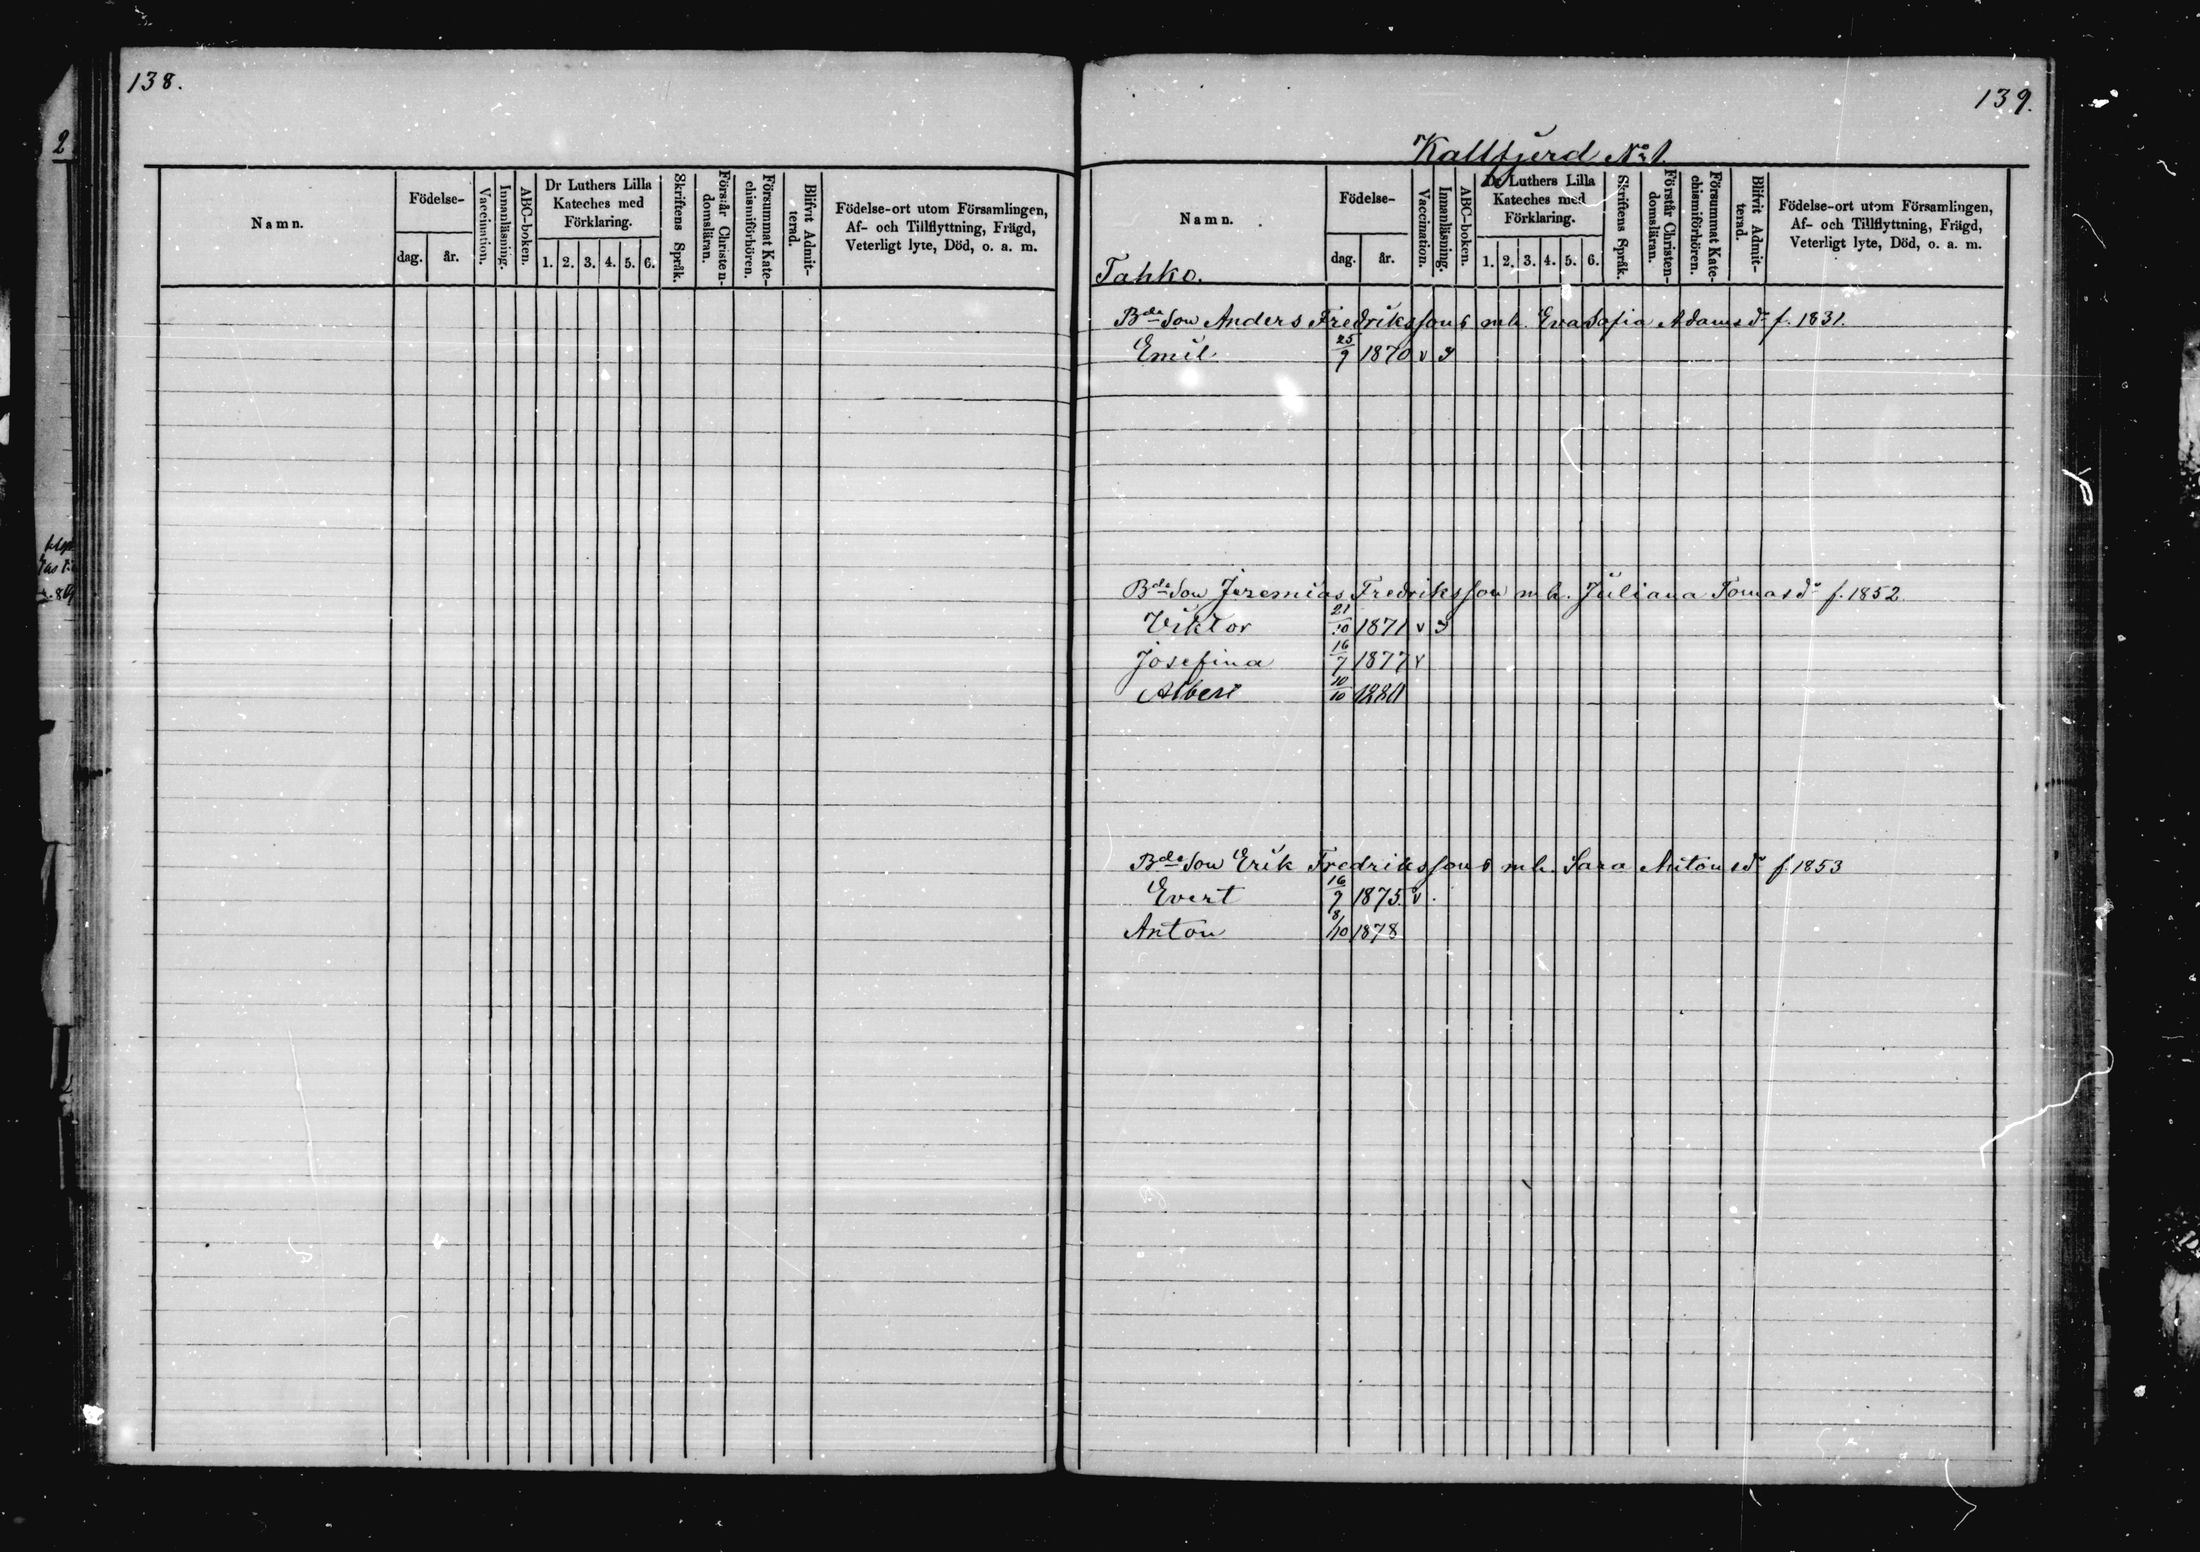 138.
Namn.
Födelse-
dag.
år.
Vaccination.
Innanläsning.
ABC-boken.
Dr Luthers Lilla
Kateches med
Förklaring.
1. 2. 3. 4. 5. 6.
Skriftens Språk.
Förstår Christen-
domsläran.
Försummat Kate-
chismiförhören.
Blifvit Admit-
terad.
Födelse-ort utom Församlingen,
Af- och Tillflyttning, Frägd,
Veterligt lyte, Död, o. a. m.
139.
Kallfjerd No 1.
Namn.
Födelse-
dag.
år.
Vaccination.
Innanläsning.
ABC-boken.
Dr Luthers Lilla
Kateches med
Förklaring.
1. 2. 3. 4. 5. 6.
Skriftens Språk.
Förstår Christen-
domsläran.
Försummat Kate-
chismiförhören.
Blifvit Admit-
terad.
Födelse-ort utom Församlingen,
Af- och Tillflyttning, Frägd,
Veterligt lyte, Död, o. a. m.
Tahko.
Bde Son Anders Fredriksson mh. Eva Sofia Adamsdr f. 1831.
Emil 25/9 1870 v
Bde Son Jeremias Fredriksson mh. Juliana Tomasdr f. 1852
Viktor 21/10 1871 v
Josefina 16/7 1877 v
Albert 10/10 1880
Bde Son Erik Fredriksson mh. Sara Antonsdr f. 1853
Evert 16/9 1875 v
Anton 8/10 1878